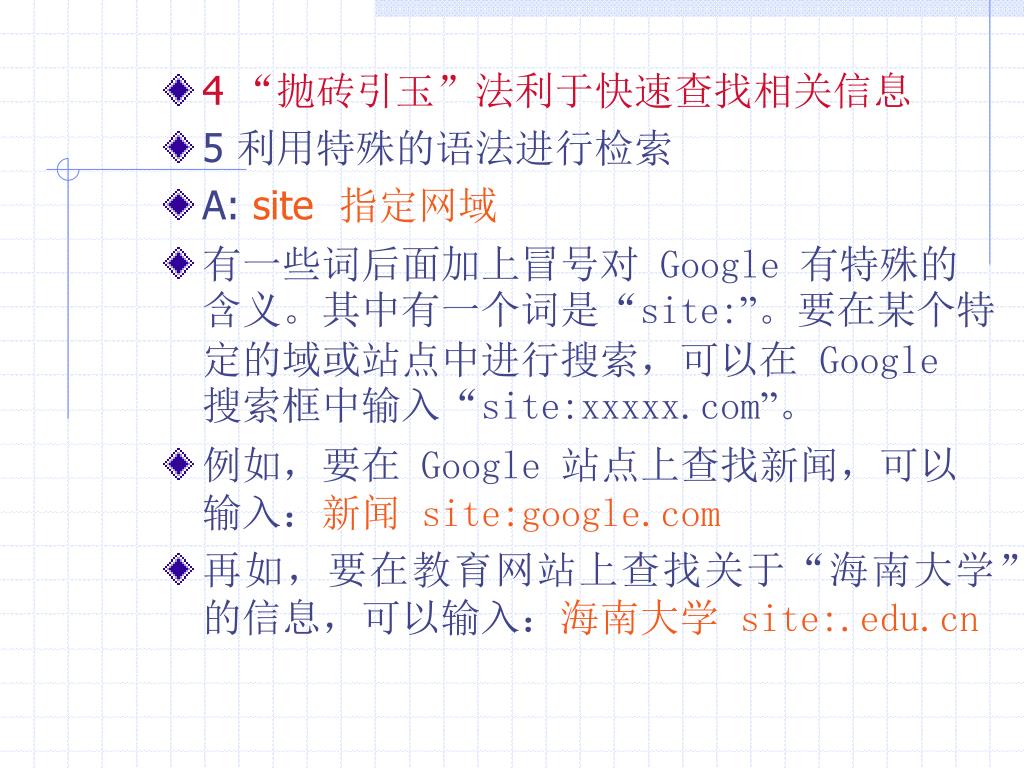 4 “抛砖引玉”法利于快速查找相关信息
5 利用特殊的语法进行检索
A: site 指定网域
有一些词后面加上冒号对 Google 有特殊的
含义。其中有一个词是“site:”。要在某个特
定的域或站点中进行搜索，可以在 Google
搜索框中输入“site:xxxxx.com”。
例如，要在 Google 站点上查找新闻，可以
输入：新闻 site:google.com
再如，要在教育网站上查找关于“海南大学”
的信息，可以输入：海南大学 site:.edu.cn